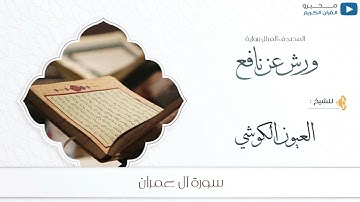 محبرو
القرآن الكريم
المصحف المرتل برواية
ورش عن نافع
للشيخ :
العيون الكوشي
سورة آل عمران